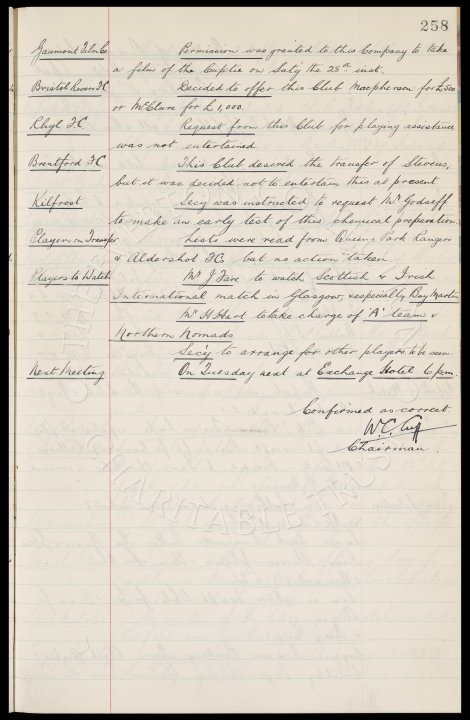 258
Gaumont Film Co Permission was granted to this Company to take
a film of the Cuptie on Sat'y the 25th inst.
Bristol Rovers F.C Decided to offer this Club Macpherson for £500
or McClure for £1,000.
Rhyl F.C Request from this Club for playing assistance
was not entertained.
Brentford F.C This Club desired the transfer of Stevens,
but it was decided not to entertain this at present.
Kilfrost Secy was instructed to request Mr
to make an early test of this chemical preparation.
Players on Transfer Lists were read from Queens Park Rangers
& Aldershot F.C. but no action taken
Players to Watch Mr J Fare to watch Scottish & Irish
International match in Glasgow, especially Boy Martin
Mr H Hart to take charge of 'A' team v
Northern Nomads.
Sec'y to arrange for other players to be seen.
Next Meeting On Tuesday next at Exchange Hotel 6 pm.
Confirmed as correct
W.C. Cuff
Chairman.
CHARITABLE TRUST